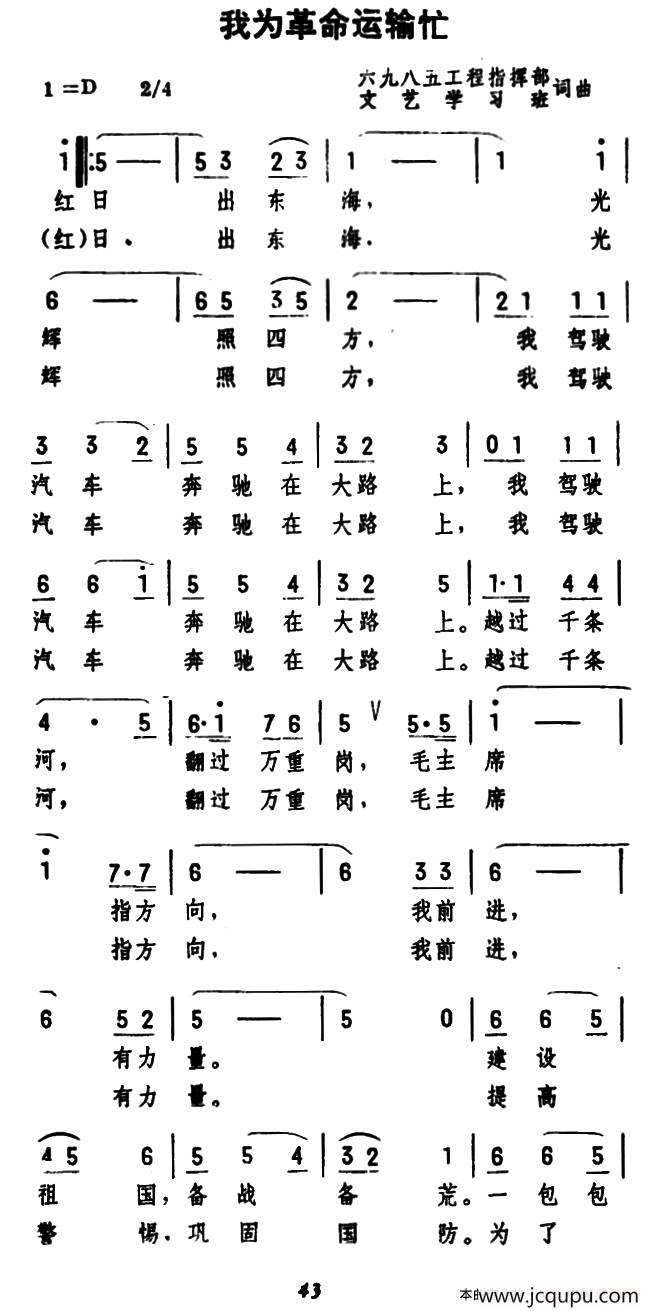 我为革命运输忙
1=D 2/4 六九八五工程指挥部
文艺学习班 词曲
i ‖: 5 — | 5 3 2 3 | 1 — | 1 i |
红日 出东海， 光
(红)日． 出东海． 光
6 — | 6 5 3 5 | 2 — | 2 1 1 1 |
辉 照四方， 我驾驶
辉 照四方， 我驾驶
3 3 2 | 5 5 4 | 3 2 3 | 0 1 1 1 |
汽车 奔驰在大路上，我驾驶
汽车 奔驰在大路上，我驾驶
6 6 i | 5 5 4 | 3 2 5 | 1·1 4 4 |
汽车 奔驰在大路上。越过千条
汽车 奔驰在大路上。越过千条
4 · 5 | 6·i 7 6 | 5 V 5·5 | i — |
河， 翻过万重岗，毛主席
河， 翻过万重岗，毛主席
i 7·7 | 6 — | 6 3 3 | 6 — |
指方向， 我前进，
指方向， 我前进，
6 5 2 | 5 — | 5 0 | 6 6 5 |
有力量。 建设
有力量。 提高
4 5 6 | 5 5 4 | 3 2 1 | 6 6 5 |
祖国，备战备荒。一包包
警惕．巩固国防。为了
43
www.jcqupu.com